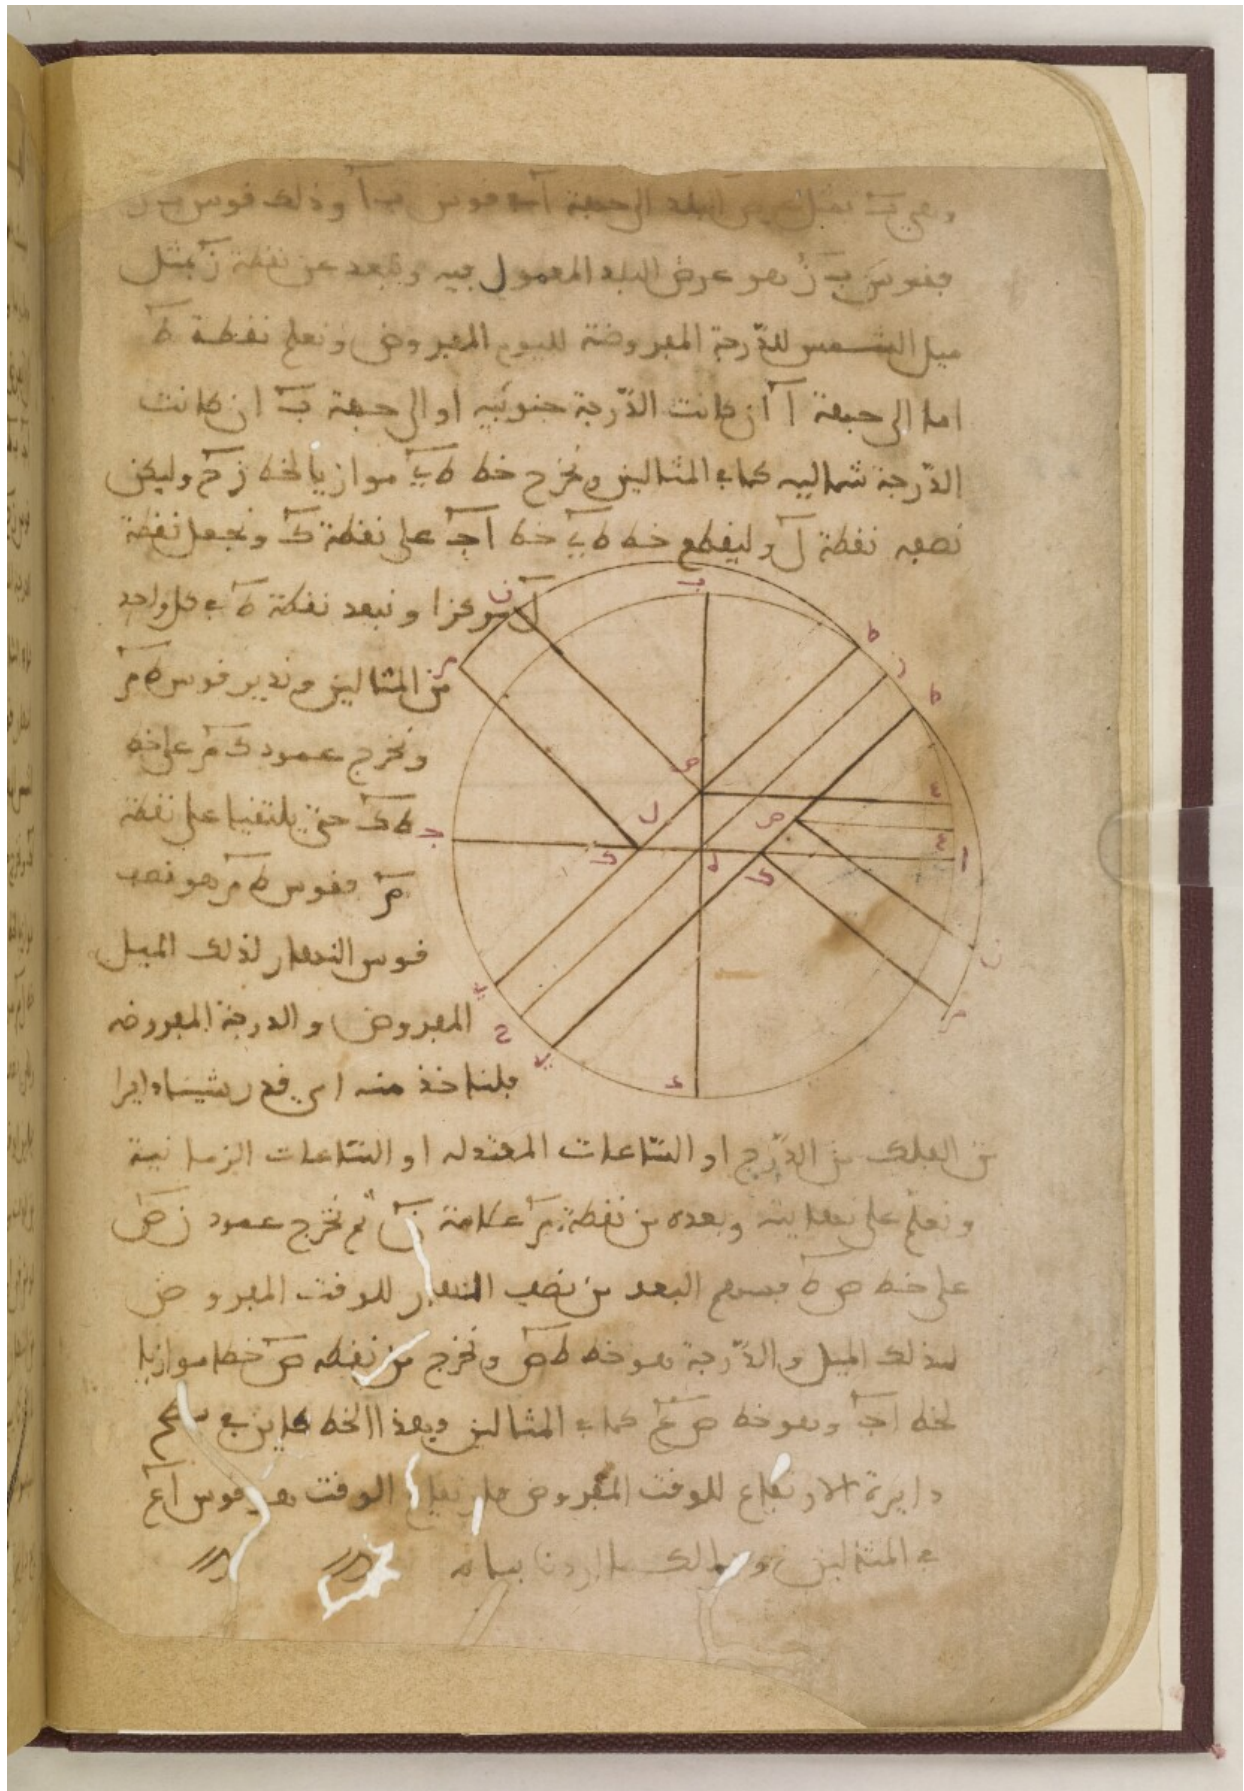 وهي ب بمثل عرض البلد الى جهة آ قوس ب آ وذلك قوس ب ز
فقوس ب ز هو عرض البلد المعمول فيه ونبعد عن نقطة ز بمثل
ميل الشمس للدّرجة المفروضة لليوم المفروض ونعلم نقطة ط
اما الى جهة آ ان كانت الدّرجة جنوبيه او الى جهة ب ان كانت
الدّرجة شماليه كما في المثالين ونخرج خط ط ي موازيا لخط ز ح وليكن
نصفه نقطة ل وليقطع خط ط ي خط ا ج على نقطة ك ونجعل نقطة
ل مركزا وببعد نقطة ط في كل واحد
من المثالين وندير قوس ط م
ونخرج عمود ك م على خط
ط ك حتى يلتقيا على نقطة
م فقوس ط م هو نصف
قوس النهار لذلك الميل
المفروض والدرجة المفروضه
فلناخذ منه اي قدر شيناه دايرا
من الفلك من الدّرج او السّاعات المعتدله او السّاعات الزمانية
ونعلّم على نهايته وبعده من نقطة م علامة ن ثم نخرج عمود ن ص
على خط ص ط فسهم البعد من نصف النهار للوقت المفروض
لذلك الميل والدّرجة هو خط ط ص ونخرج من نقطه ص خطا موازيا
لخط ا ج وهو خط ص ع كما في المثالين وهذا الخط كاين في سطح
دايرة الارتفاع للوقت المفروض فارتفاع الوقت هو قوس ا ع
في المثالين وذلك ما اردنا بيانه
ب
ط
ز
ط
ن
م
ص
ع
ل
ص
ج
ك
ه
ك
ع
ا
ن
م
ي
ح
ي
د